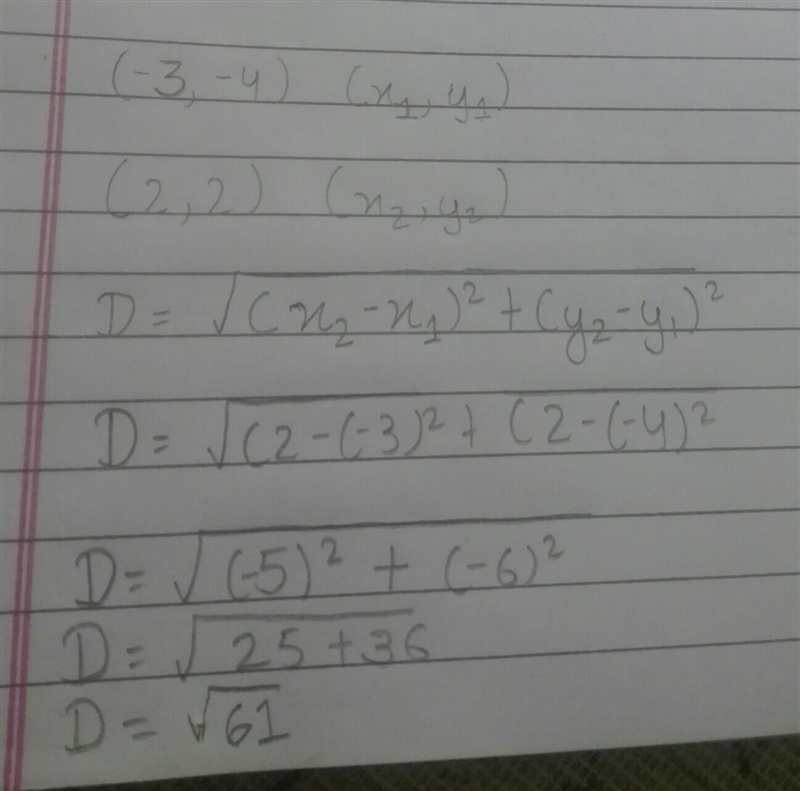 (-3, -4) (x₁, y₁)
(2, 2) (x₂, y₂)
D = √(x₂-x₁)² + (y₂-y₁)²
D = √(2-(-3)² + (2-(-4)²
D = √(-5)² + (-6)²
D = √25+36
D = √61